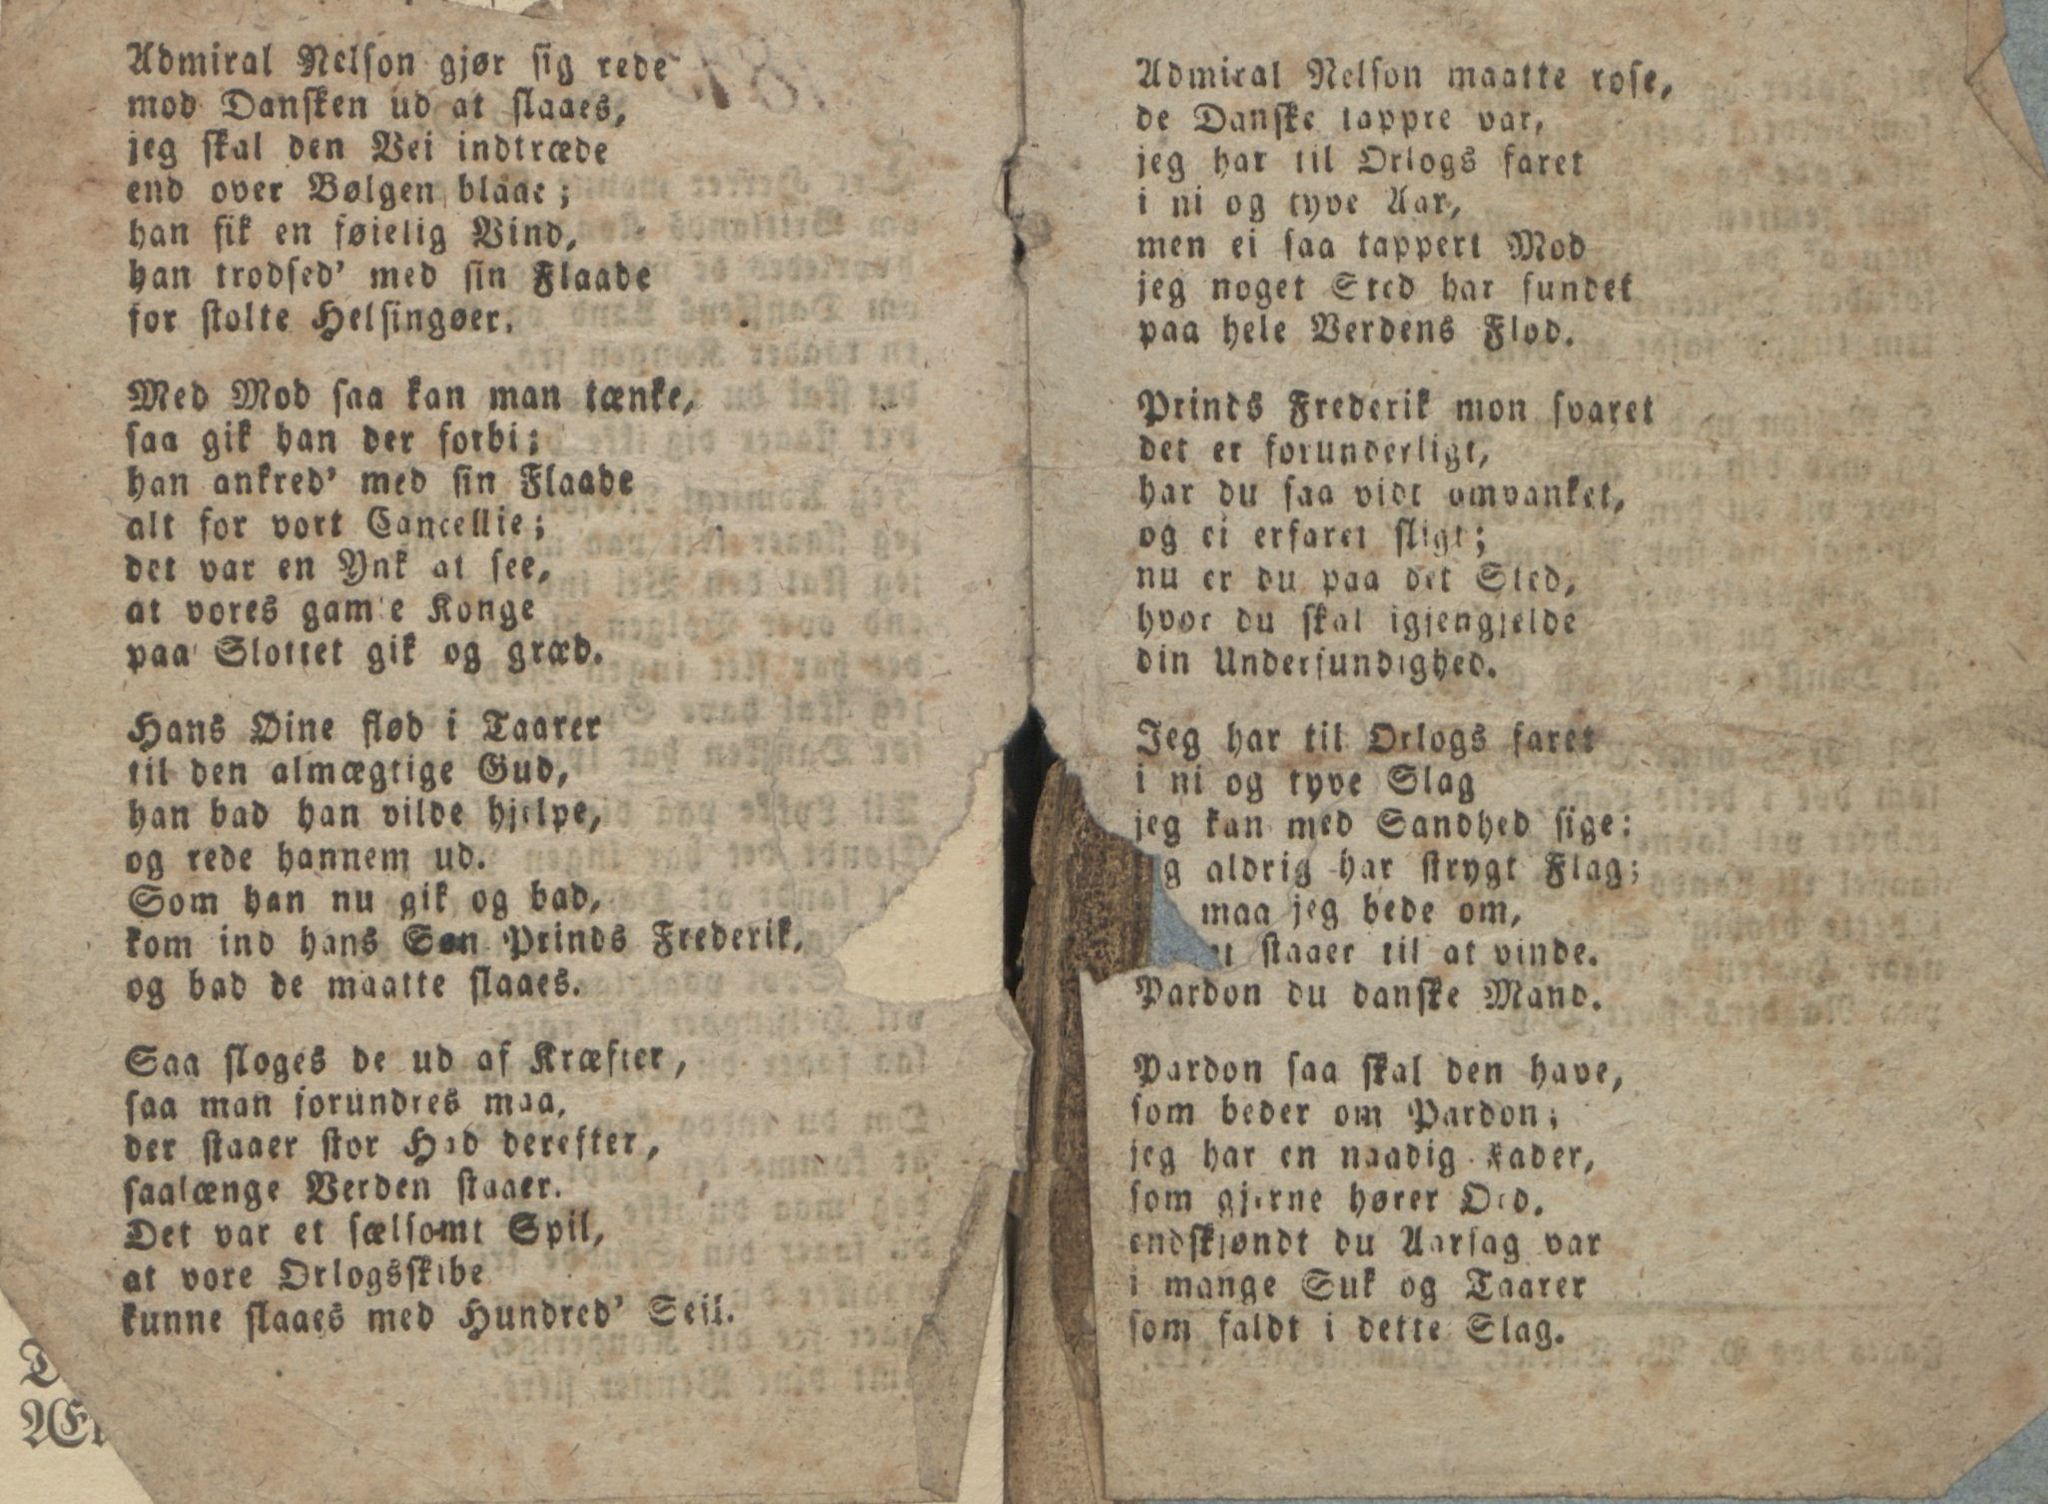 Admiral Nelson gjør sig rede
mod Dansken ud at slaaes,
jeg skal den Vei indtræde
end over Bølgen blaae;
han fik en føielig Vind,
han trodsed' med sin Flaade
for stolte Helsingøer.
Med Mod saa kan man tænke,
saa gik han der forbi;
han ankred' med sin Flaade
alt for vort Cancellie;
det var en Ynk at see,
at vores gamle Konge
paa Slottet gik og græd.
Hans Øine flød i Taarer
til den almægtige Gud,
han bad han vilde hjelpe,
og rede hannem ud.
Som han nu gik og bad,
kom ind hans Søn Prinds Frederik,
og bad de maatte slaaes.
Saa sloges de ud af Kræfter,
saa man forundres maa,
der staaer stor Had derefter,
saalænge Verden staaer.
Det var et sælsomt Spil,
at vore Orlogsskibe
kunne slaaes med Hundred' Seil.
Admiral Nelson maatte rose,
de Danske tappre var,
jeg har til Orlogs faret
i ni og tyve Aar,
men ei saa tappert Mod
jeg noget Sted har fundet
paa hele Verdens Flod.
Prinds Frederik mon svaret
det er forunderligt,
har du saa vidt omvanket,
og ei erfaret sligt;
nu er du paa det Sted,
hvor du skal igjengjelde
din Underfundighed.
Jeg har til Orlogs faret
i ni og tyve Slag
jeg kan med Sandhed sige:
jeg aldrig har strygt Flag;
maa jeg bede om,
staaer til at vinde.
Pardon du danske Mand.
Pardon saa skal den have,
som beder om Pardon;
jeg har en naadig Fader,
som gjerne hører Ord.
endskjøndt du Aarsag var
i mange Suk og Taarer
som faldt i dette Slag.